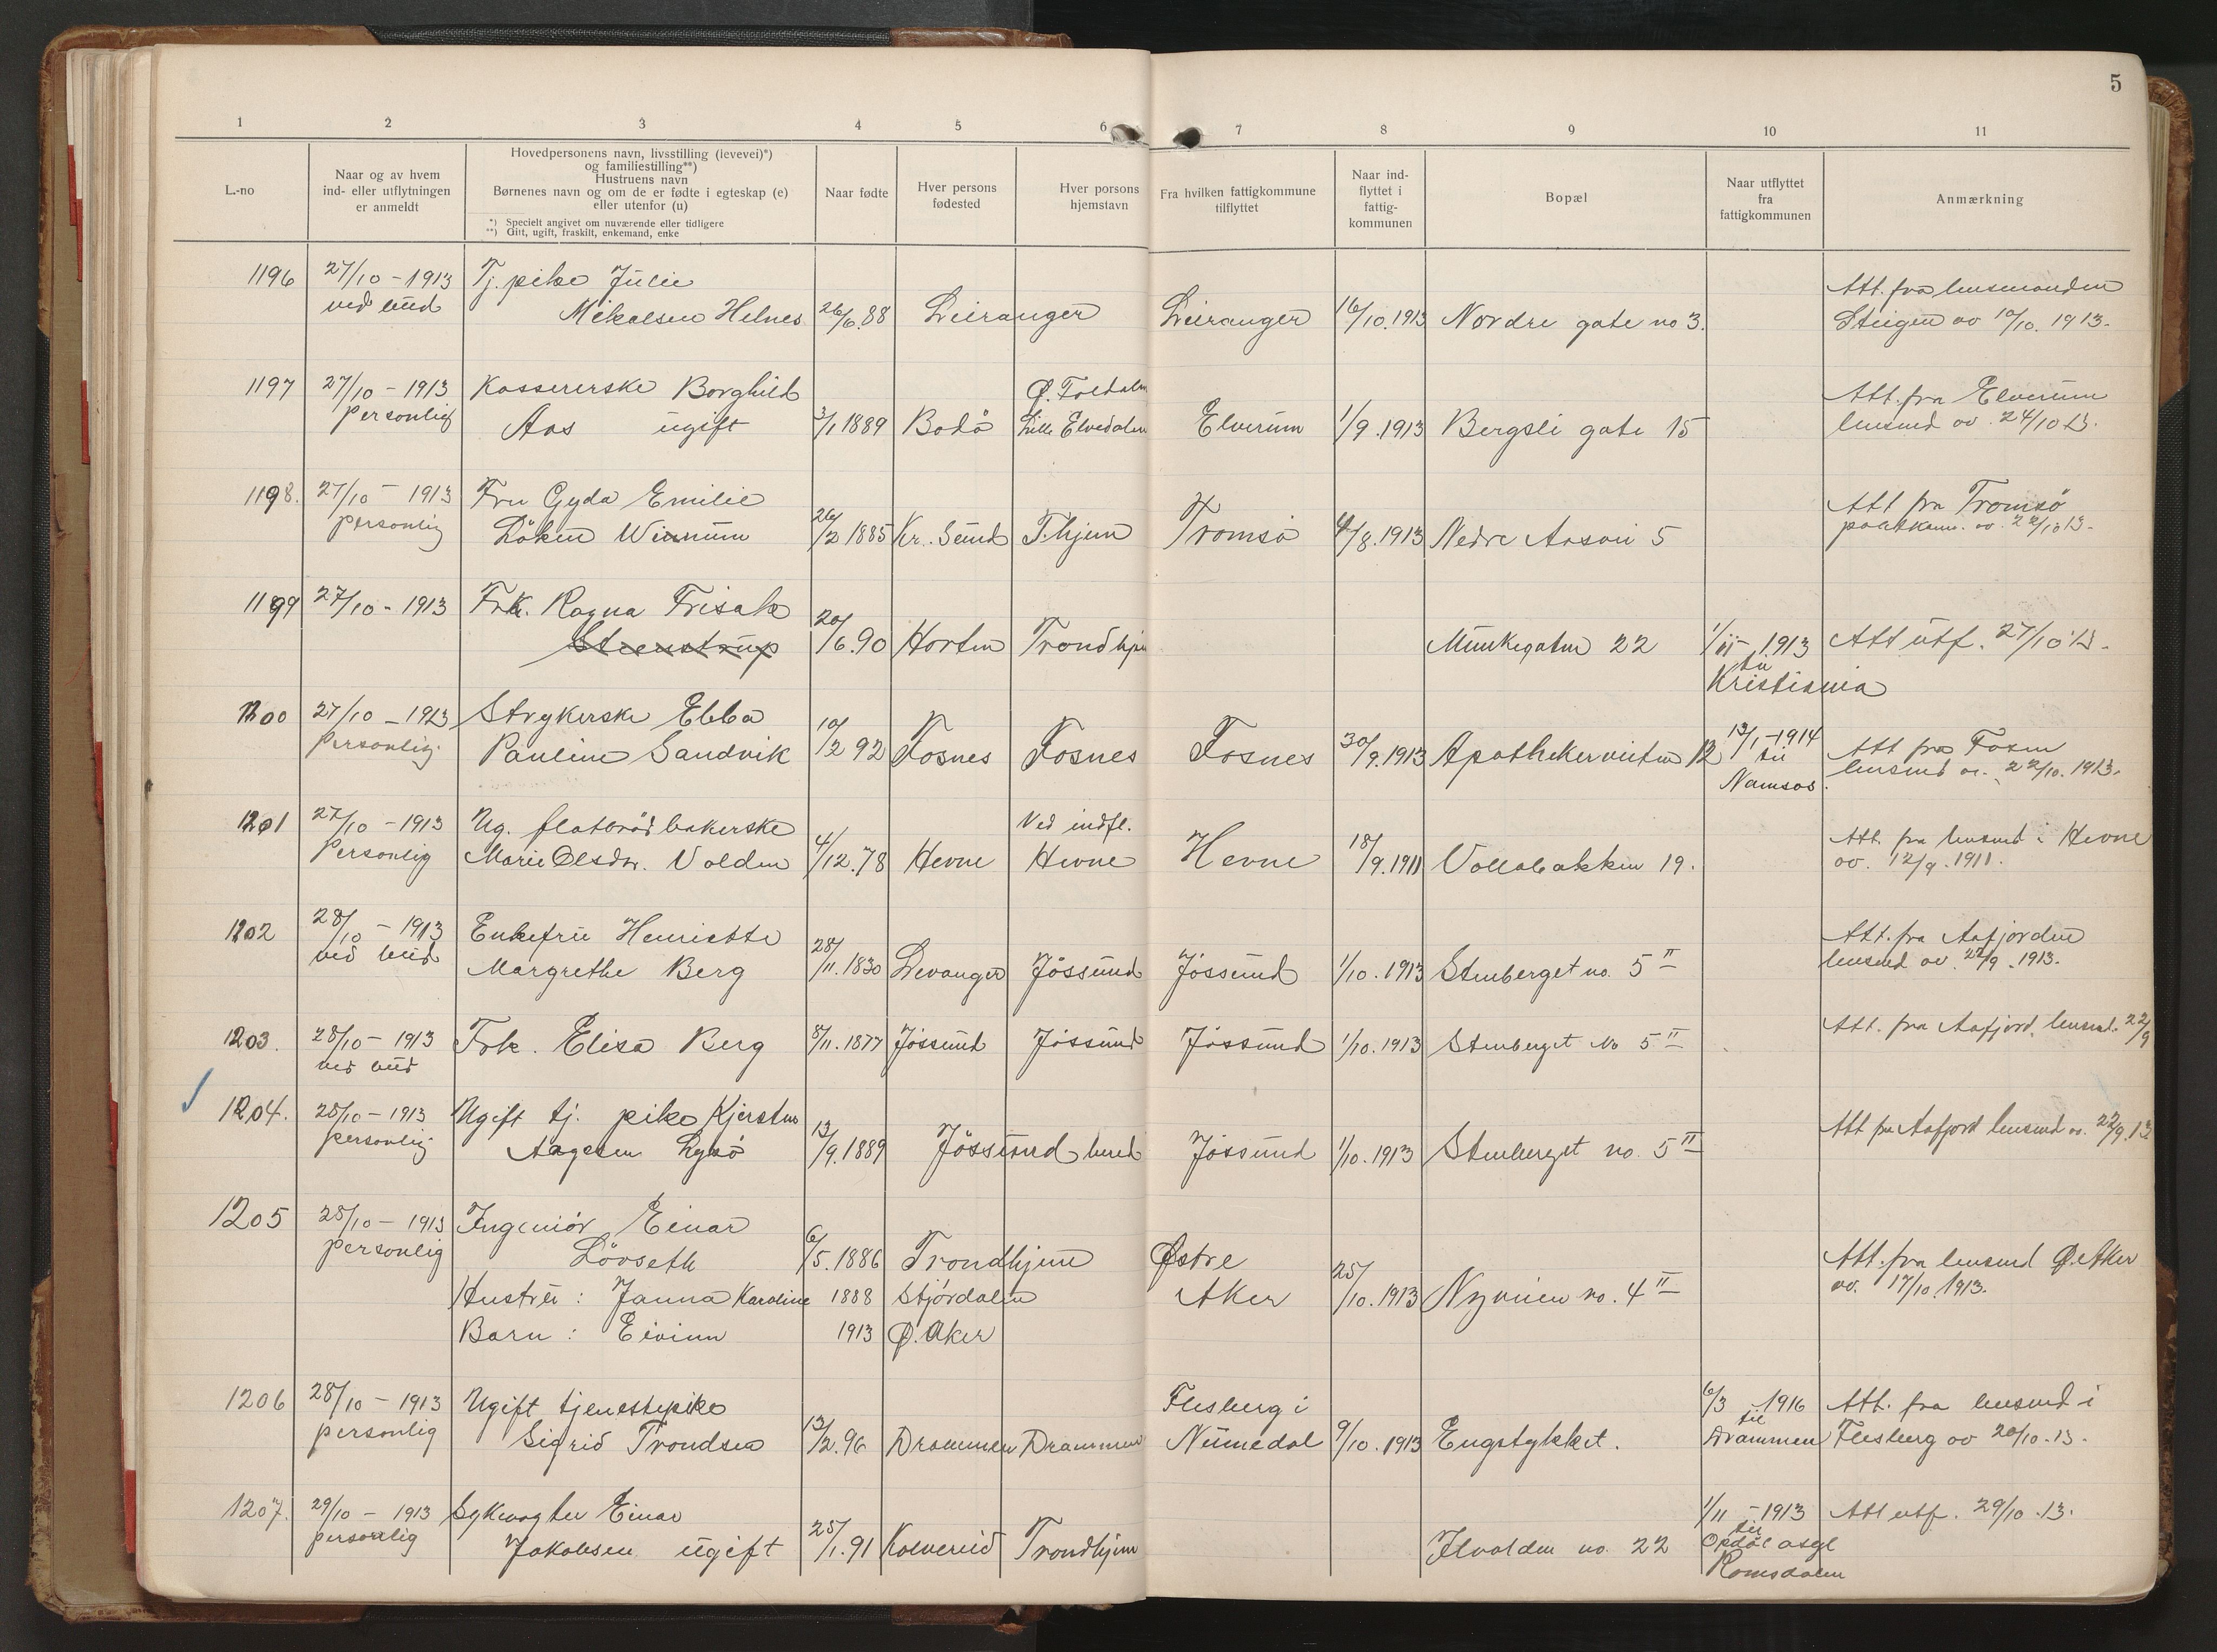 5
1 2 3 4 5 6 7 8 9 10 11
L.-no
Naar og av hvem
ind- eller utflytningen
er anmeldt
Hovedpersonens navn, livsstilling (levevei)*)
og familiestilling**)
Hustruens navn
Børnenes navn og om de er fødte i egteskap (e)
eller utenfor (u)
*) Specielt angivet om nuværende eller tidligere
**) Gift, ugift, fraskilt, enkemand, enke
Naar fødte
Hver persons
fødested
Hver porsons
hjemstavn
Fra hvilken fattigkommune
tilflyttet
Naar ind-
flyttet i
fattig-
kommunen
Bopæl
Naar utflyttet
fra
fattigkommunen
Anmærkning
1196 27/10 - 1913 Tj. pike Julie Att. fra lensmanden
ved bud Mikalsen Helnes 26/6.88 Leiranger Leiranger 16/10.1913 Nordre gate no 3. Steigen av 10/10. 1913.
1197 27/10 - 1913 Kassererske Borghild Ø. Foldalen Att. fra Elverum
personlig Aas ugift 3/1 1889 Bodö Lille Elvedalen Elverum 1/9.1913 Bergsli gate 15 lensmd av. 24/10 13.
1198. 27/10 - 1913 Fru Gyda Emilie Att fra Tromsö
personlig Löken Winnum 26/2 1885 Kr. Sund T.hjem Tromsö 4/8.1913 Nedre Aasvei 5 av. 22/10 13.
1199 27/10 - 1913 Frk. Ragna Frisak
Steenstrup 20/6.90 Horten Trondhjem Munkegaten 22 1/11 - 1913 Att utf. 27/10 13.
til
Kristiania
1200 27/10 - 1913 Strykerske Ebba 13/1 - 1914 Att fra Fosnes
Personlig. Pauline Sandvik 10/2 92 Fosnes Fosnes Fosnes 30/9.1913 Apothekerveiten 12 til lensmd av. 22/10. 1913.
Namsos.
1201 27/10 - 1913 Ug. flatbrödbakerske Ved indfl. Att. fra lensmd i Hevne
Personlig Marie Olsdtr. Volden 4/12.78 Hevne Hevne Hevne 18/9.1911 Vollabakken 19. av. 12/9.1911.
1202 28/10 - 1913 Enkefru Henriette Att. fra Aafjorden
ved bud Margrethe Berg 28/11.1830 Levanger Jössund Jössund 1/10.1913 Stenberget no. 5 II lensmd av. 22/9.1913.
1203. 28/10 - 1913 Frk. Elisa Berg 8/11.1877 Jössund Jössund Jössund 1/10.1913 Stenberget No 5 II Att. fra Aafjord lensmd. 22/9
ved bud
1204. 28/10 - 1913 Ugift tj. pike Kjersten
personlig. Aagesen Lysö 13/9.1889 Jössund herred Jössund 1/10.1913 Stenberget no. 5 II Att fra Aafjord lensmd av. 22/9.13
1205 28/10 - 1913 Ingeniör Einar
personlig Lövseth 6/5.1886 Trondhjem Østre Att. fra lensmd Ø. Aker
Hustru: Janna Karoline 1888 Stjördalen Aker 25/10.1913 Nyveien no. 4 II av. 17/10.1913.
Barn: Eivinn 1913 Ø. Aker
1206 28/10 - 1913 Ugift tjenestepike Flesberg i 6/3 1916 Att. fra lensmd i
personlig Sigrid Trondsen 13/2.96 Drammen Drammen Numedal 9/10.1913 Engstykket. til Drammen Flesberg av 20/10.13.
1207. 29/10 - 1913 Sykevogter Einar 1/11 - 1913 Att utf. 29/10.13.
personlig Jakobsen ugift 25/1.91 Kolvereid Trondhjem Ilvolden no. 22 til
Opdöl asyl
Romsdalen